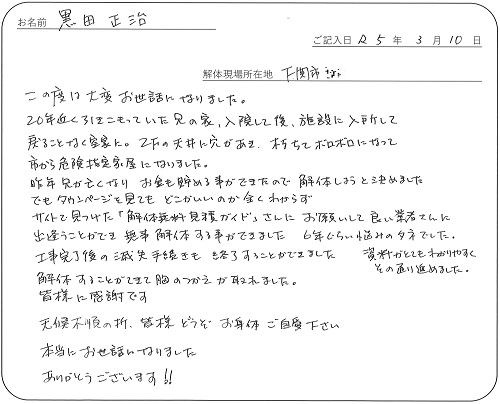 お名前 黒田 正治
ご記入日 R5年 3月 10日
解体現場所在地 下関市
この度は大変 お世話になりました。
20年近く引きこもっていた兄の家、入院して後、施設に入所して
戻ることなく空家に。2Fの天井に穴があき、朽ちてボロボロになって
市から危険指定家屋になりました。
昨年 兄が亡くなり お金も貯める事ができたので 解体しようと決めました
でも タウンページを見ても どこがいいのか全くわからず
サイトで見つけた「解体無料見積ガイド」さんに お願いして 良い業者さんに
出逢うことができ 無事 解体する事ができました 6年ぐらい悩みのタネでした。
工事完了後の滅失手続きも 終了することができました 資料がとてもわかりやすく
その通り進めました。
解体することができて 胸のつかえが取れました。
皆様に感謝です
天候不順の折、皆様 どうぞ お身体 ご自愛下さい
本当に お世話になりました
ありがとうございます!!